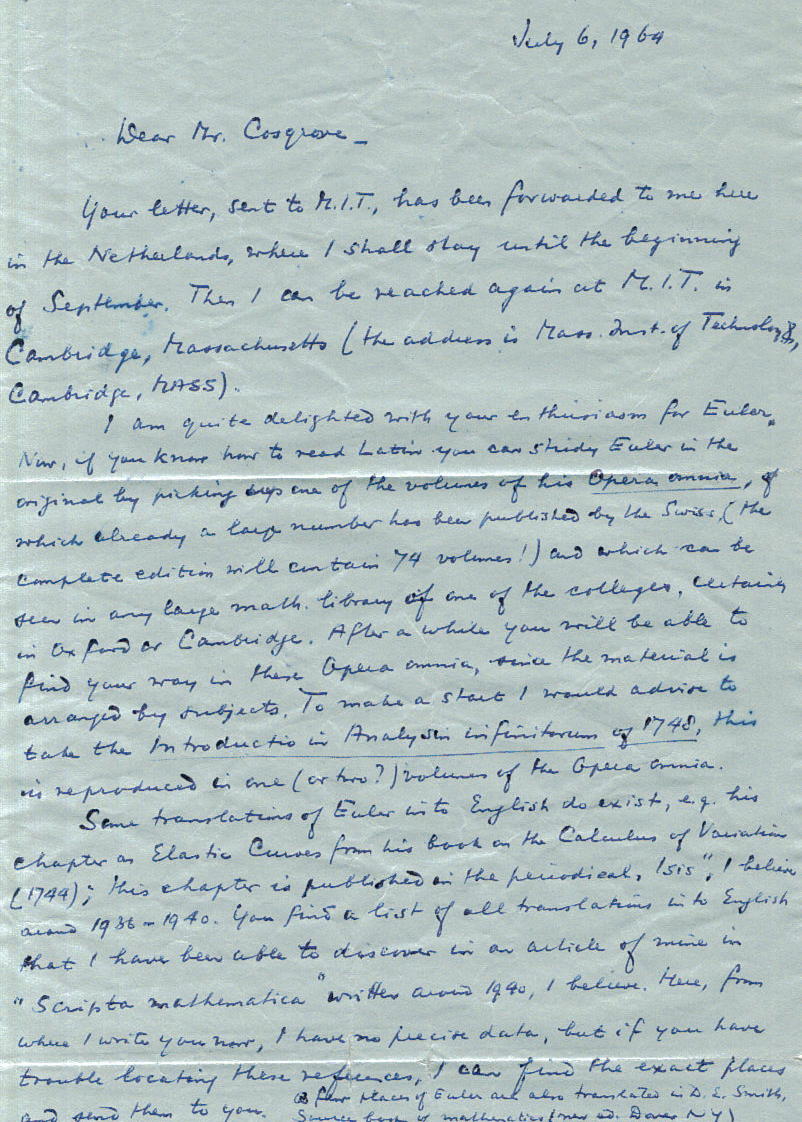 July 6, 1964
Dear Mr. Cosgrove –
Your letter, sent to M.I.T., has been forwarded to me here
in the Netherlands, where I shall stay until the beginning
of September. Then I can be reached again at M.I.T. in
Cambridge, Massachusetts (the address is Mass. Inst. of Technology,
Cambridge, MASS).
I am quite delighted with your enthusiasm for Euler.
Now, if you know how to read Latin you can study Euler in the
original by picking up one of the volumes of his Opera omnia, of
which already a large number has been published by the Swiss, (the
complete edition will contain 74 volumes!) and which can be
seen in any large math. library of one of the colleges, certainly
in Oxford or Cambridge. After a while you will be able to
find your way in these Opera omnia, since the material is
arranged by subjects. To make a start I would advise to
take the Introductio in Analysin infinitorum of 1748, this
is reproduced in one (or two?) volumes of the Opera omnia.
Some translations of Euler into English do exist, e.g. his
chapter on Elastic Curves from his book on the Calculus of Variation
(1744); this chapter is published in the periodical „Isis", I believe
around 1936–1940. You find a list of all translations into English
that I have been able to discover in an article of mine in
"Scripta mathematica" written around 1940, I believe. Here, from
where I write you now, I have no precise data, but if you have
trouble locating these references, I can find the exact places
and send them to you. A few places of Euler are also translated in D. E. Smith,
Source book of mathematics (new ed. Dover N Y)